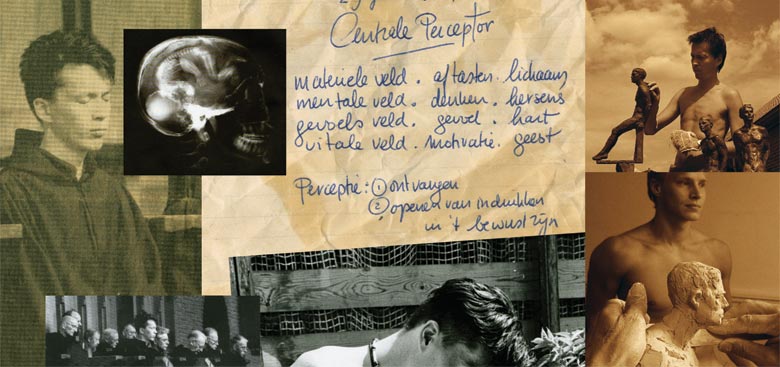 Centrale Perceptor
materiele veld . aftasten . lichaam
mentale veld . denken . hersens
gevoels veld . gevoel . hart
vitale veld . motivatie . geest
Perceptie: ① ontvangen
② openen van indrukken
in 't bewustzijn